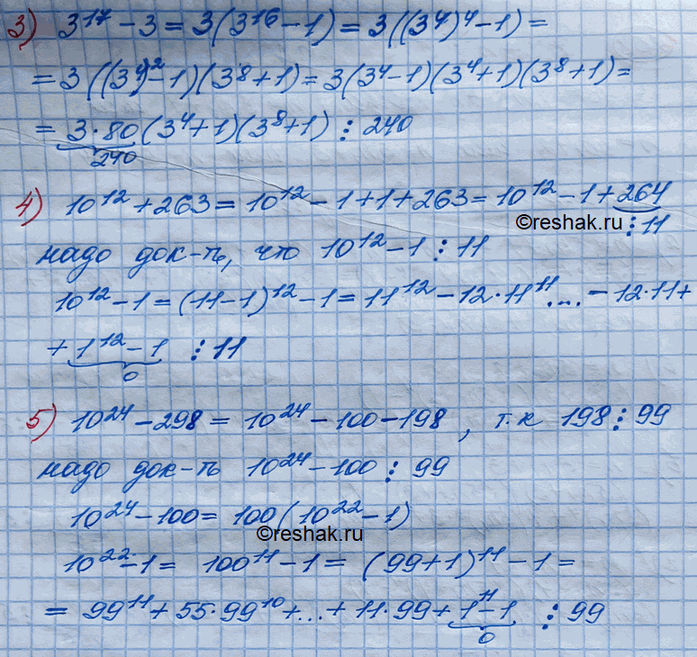 3) 3¹⁷ - 3 = 3(3¹⁶ - 1) = 3((3⁴)⁴ - 1) =
= 3((3⁴)² - 1)(3⁸ + 1) = 3(3⁴ - 1)(3⁴ + 1)(3⁸ + 1) =
= 3·80(3⁴ + 1)(3⁸ + 1) ⋮ 240
240
4) 10¹² + 263 = 10¹² - 1 + 1 + 263 = 10¹² - 1 + 264
©reshak.ru ⋮ 11
надо док-ть, что 10¹² - 1 ⋮ 11
10¹² - 1 = (11 - 1)¹² - 1 = 11¹² - 12·11¹¹ ... - 12·11 +
+ 1¹² - 1 ⋮ 11
0
5) 10²⁴ - 298 = 10²⁴ - 100 - 198, т.к 198 ⋮ 99
надо док-ть 10²⁴ - 100 ⋮ 99
10²⁴ - 100 = 100(10²² - 1)
©reshak.ru
10²² - 1 = 100¹¹ - 1 = (99 + 1)¹¹ - 1 =
= 99¹¹ + 55·99¹⁰ + ... + 11·99 + 1¹¹ - 1 ⋮ 99
0